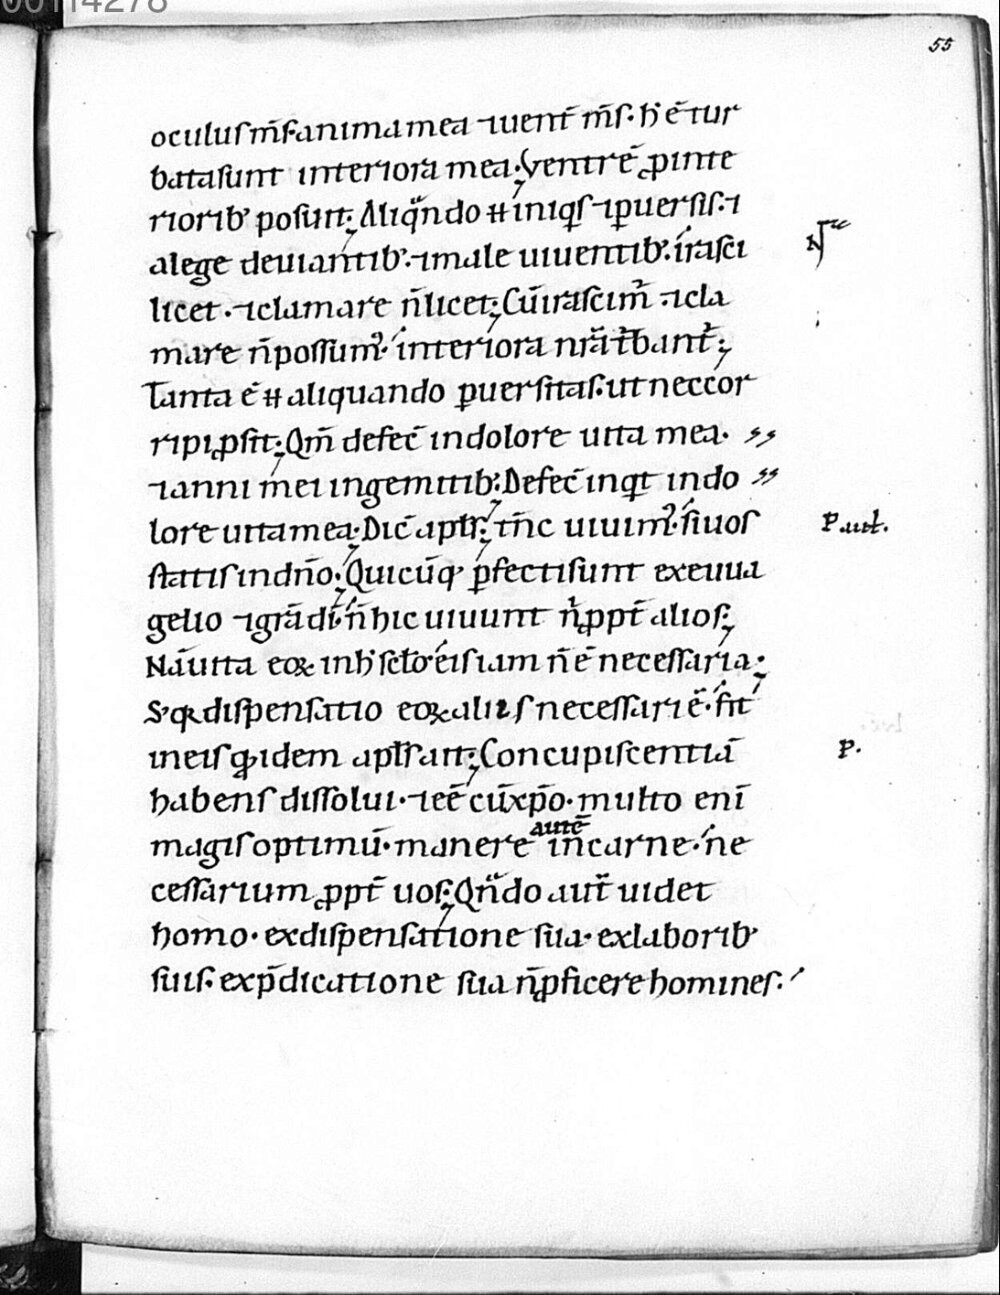 00114278
55
oculus m̄s anima mea ⁊uent̄ m̄s. h̄ ē tur
bata sunt interiora mea. Ventrē ꝓ inte
riorib' posuit; Aliqͣndo ħ iniqͥs ⁊ ꝑuersis. ⁊
a lege deuiantib'. ⁊ male uiuentib'. irasci
licet. ⁊ clamare n̄ licet; Cū irascim᷒ ⁊ cla
mare n̄ possum᷒. interiora nr̄a t̄bant᷒;
Tanta ē ħ aliquando ꝑuersitas. ut nec cor
ripi ꝓsit; Qm̄ defec̄ in dolore uita mea.
⁊ anni mei in gemitib'; Defec̄ inqt in do
lore uita mea. Dic̄ apls̄; t̄nc uiuim᷒. si uos
statis in dn̄o. Quicūq' ꝑfecti sunt ex euua
Paul.
gelio ⁊ grā di. n̄ hic uiuunt n̄ ꝓpt̄ alios;
Nā uita eoꝝ in h̄ sc̄lo eis iam n̄ ē necessaria;
S; qꝛ dispensatio eoꝝ aliis necessari ē. fit
in eis qͥdem apls̄ ait; Concupiscentiā
P.
habens dissolui. ⁊ eē cū xp̄o. multo enī
magis optimū. manere autē in carne. ne
cessarium ꝓpt̄ uos; Qn̄do aut̄ uidet
homo. ex dispensatione sua. ex laborib'
suis. ex p̄dicatione sua n̄ ꝓficere homines.